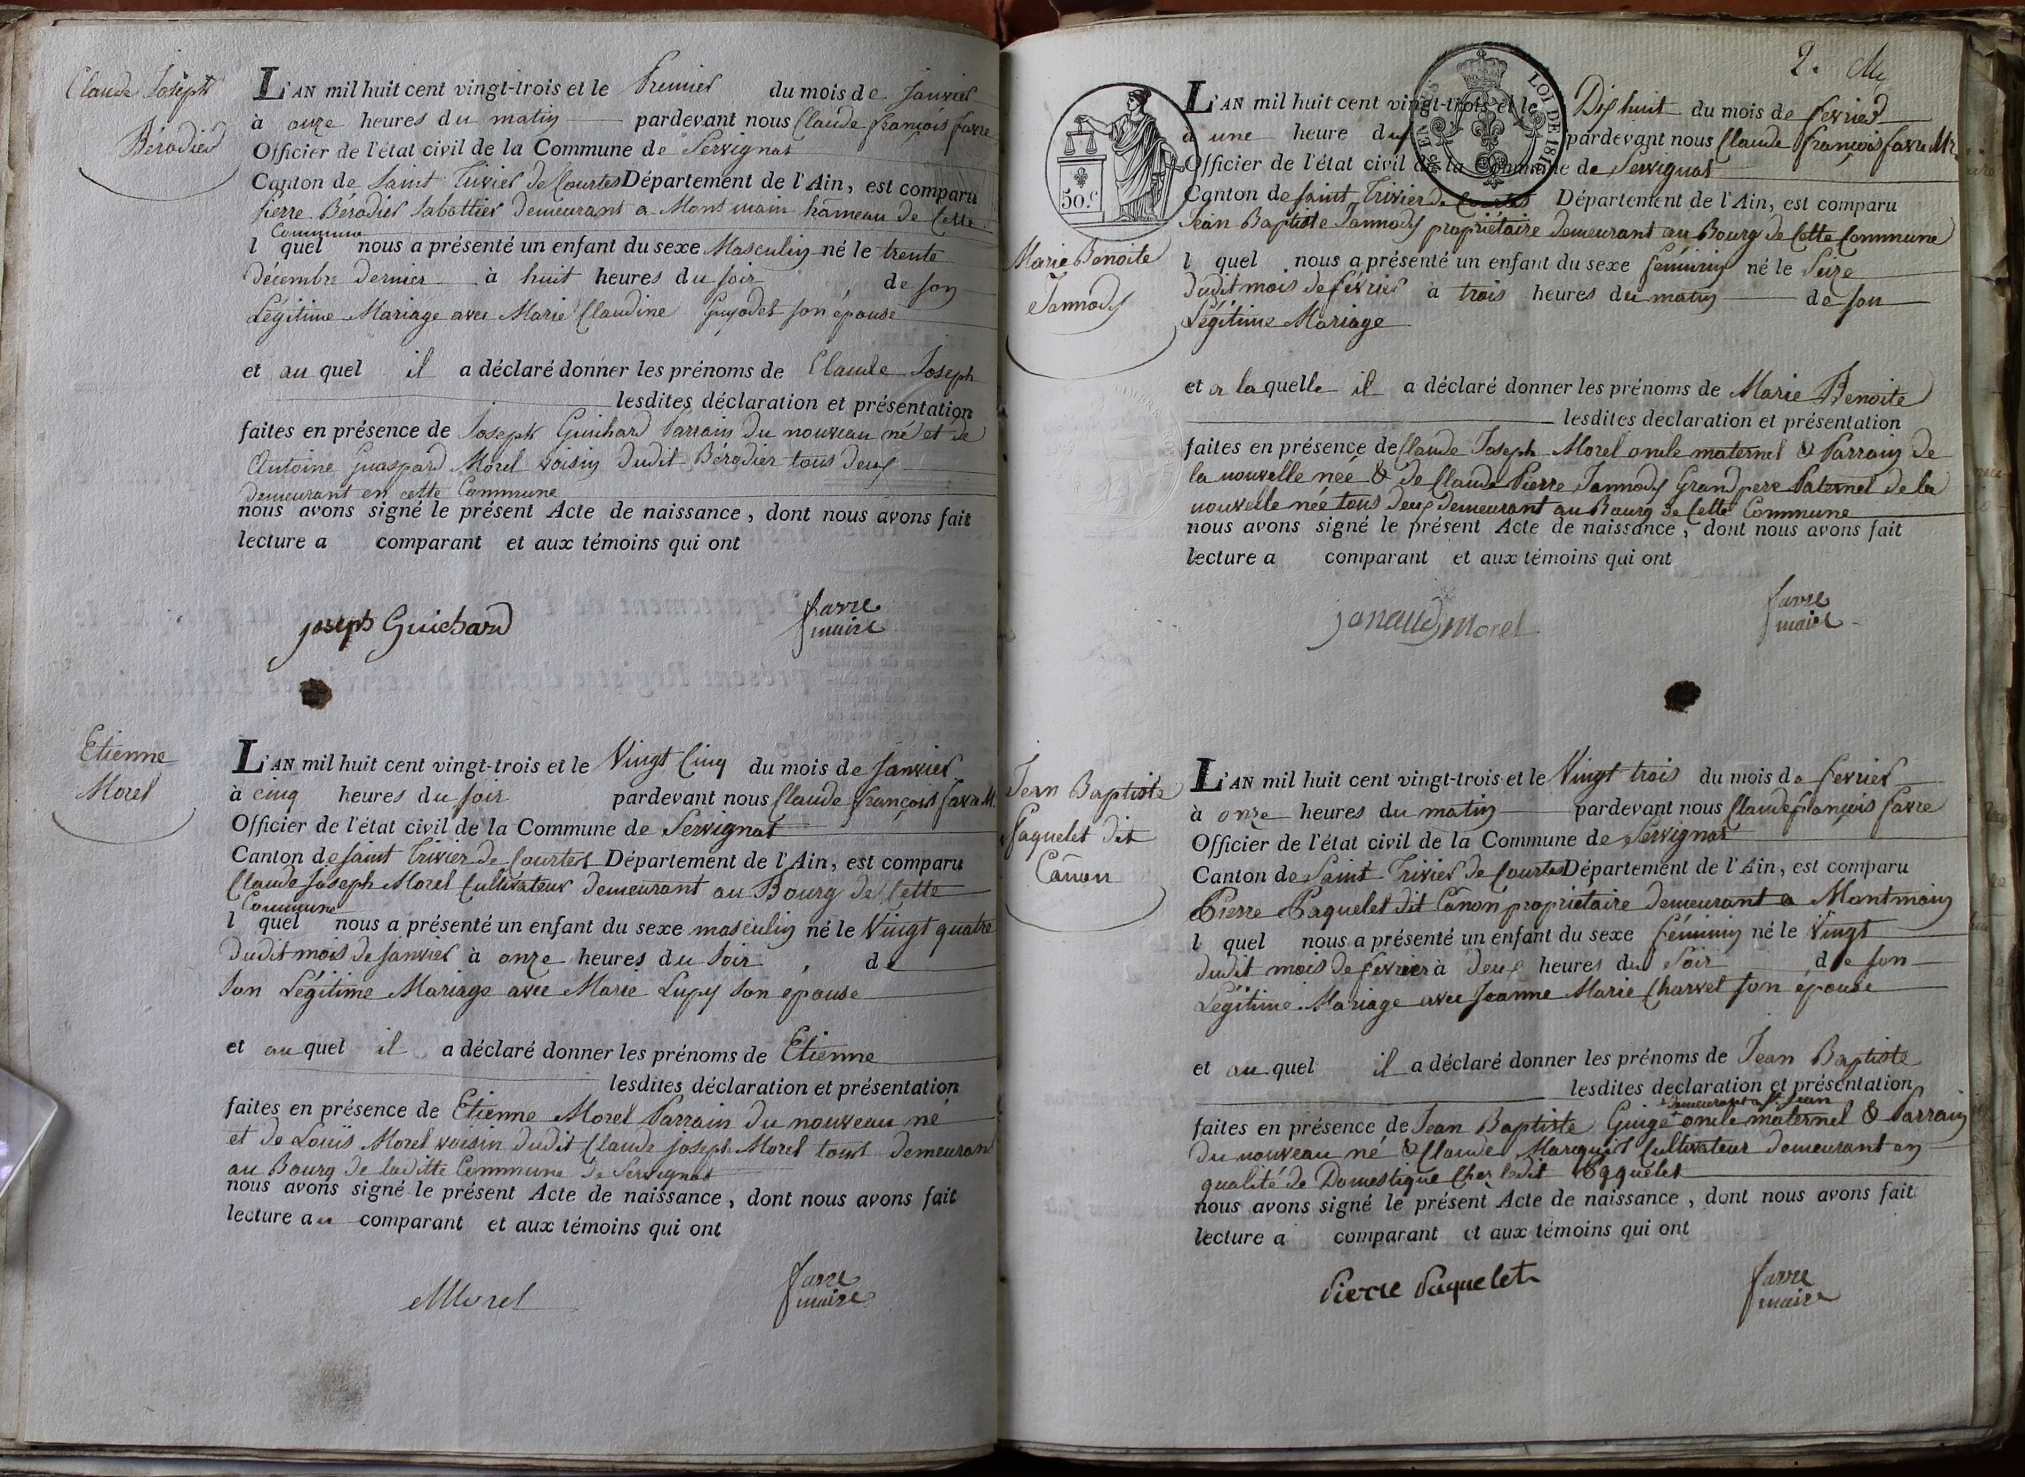 Claude Joseph
Béradier
L'AN mil huit cent vingt-trois et le Premier du mois de Janvier
à onze heures du matin pardevant nous Claude françois favre
Officier de l'état civil de la Commune de Servignat
Canton de Saint Trivier de Courtes Département de l'Ain, est comparu
pierre Béradier Sabottier demeurant a Montmain hameau de Cette
Commune
l quel nous a présenté un enfant du sexe Masculin né le trente
décembre dernier à huit heures du soir de son
Légitime Mariage avec Marie Claudine Guyodet son épouse
et au quel il a déclaré donner les prénoms de Claude Joseph
lesdites déclaration et présentation
faites en présence de Joseph Guichard Parrain du nouveau né et de
Antoine Guaspard Morel voisin dudit Béradier tous deux
demeurant en cette Commune
nous avons signé le présent Acte de naissance, dont nous avons fait
lecture a comparant et aux témoins qui ont
joseph Guichard
favre
maire
Etienne
Morel
L'AN mil huit cent vingt-trois et le Vingt Cinq du mois de Janvier
à cinq heures du soir pardevant nous Claude françois favre M.
Officier de l'état civil de la Commune de Servignat
Canton de Saint Trivier de Courtes Département de l'Ain, est comparu
Claude Joseph Morel Cultivateur demeurant au Bourg de Cette
Commune
l quel nous a présenté un enfant du sexe masculin né le Vingt quatre
dudit mois de janvier à onze heures du Soir de
Son Légitime Mariage avec Marie Lupy Son épouse
et au quel il a déclaré donner les prénoms de Etienne
lesdites déclaration et présentation
faites en présence de Etienne Morel Parrain du nouveau né
et de Louis Morel voisin dudit Claude joseph Morel tous demeurant
au Bourg de laditte Commune de Servignat
nous avons signé le présent Acte de naissance, dont nous avons fait
lecture au comparant et aux témoins qui ont
Morel
favre
maire
2.
50.c
LOI DE 1816
Marie Benoite
Jannody
L'AN mil huit cent vingt-trois et le Dix huit du mois de fevrier
à une heure du pardevant nous Claude françois favre Mre
Officier de l'état civil de la Commune de Servignat
Canton de Saint Trivier de Courtes Département de l'Ain, est comparu
Jean Baptiste Jannody propriétaire demeurant au Bourg de Cette Commune
l quel nous a présenté un enfant du sexe féminin né le Seize
dudit mois de février à trois heures du matin de son
Légitime Mariage
et a la quelle il a déclaré donner les prénoms de Marie Benoite
lesdites declaration et présentation
faites en présence de Claude Joseph Morel oncle maternel & Parrain de
la nouvelle née & de Claude Pierre Jannody Grand pere Paternel de la
nouvelle née tous deux demeurant au Bourg de Cette Commune
nous avons signé le présent Acte de naissance, dont nous avons fait
lecture a comparant et aux témoins qui ont
janaudy morel
favre
maire
Jean Baptiste
Paquelet dit
Canon
L'AN mil huit cent vingt-trois et le Vingt trois du mois de fevrier
à onze heures du matin pardevant nous Claude françois favre
Officier de l'état civil de la Commune de Servignat
Canton de Saint Trivier de Courtes Département de l'Ain, est comparu
Pierre Paquelet dit Canon propriétaire demeurant a Montmain
l quel nous a présenté un enfant du sexe féminin né le Vingt
dudit mois de fevrier à deux heures du Soir de son
Légitime Mariage avec Jeanne Marie Charvet son épouse
et au quel il a déclaré donner les prénoms de Jean Baptiste
lesdites declaration et présentation
demeurant a St. Jean
faites en présence de Jean Baptiste Guigé oncle maternel & Parrain
du nouveau né & Claude Marquis Cultivateur demeurant en
qualité de Domestique Chez ledit Paquelet
nous avons signé le présent Acte de naissance, dont nous avons fait
lecture a comparant et aux témoins qui ont
Pierre Paquelet
favre
maire